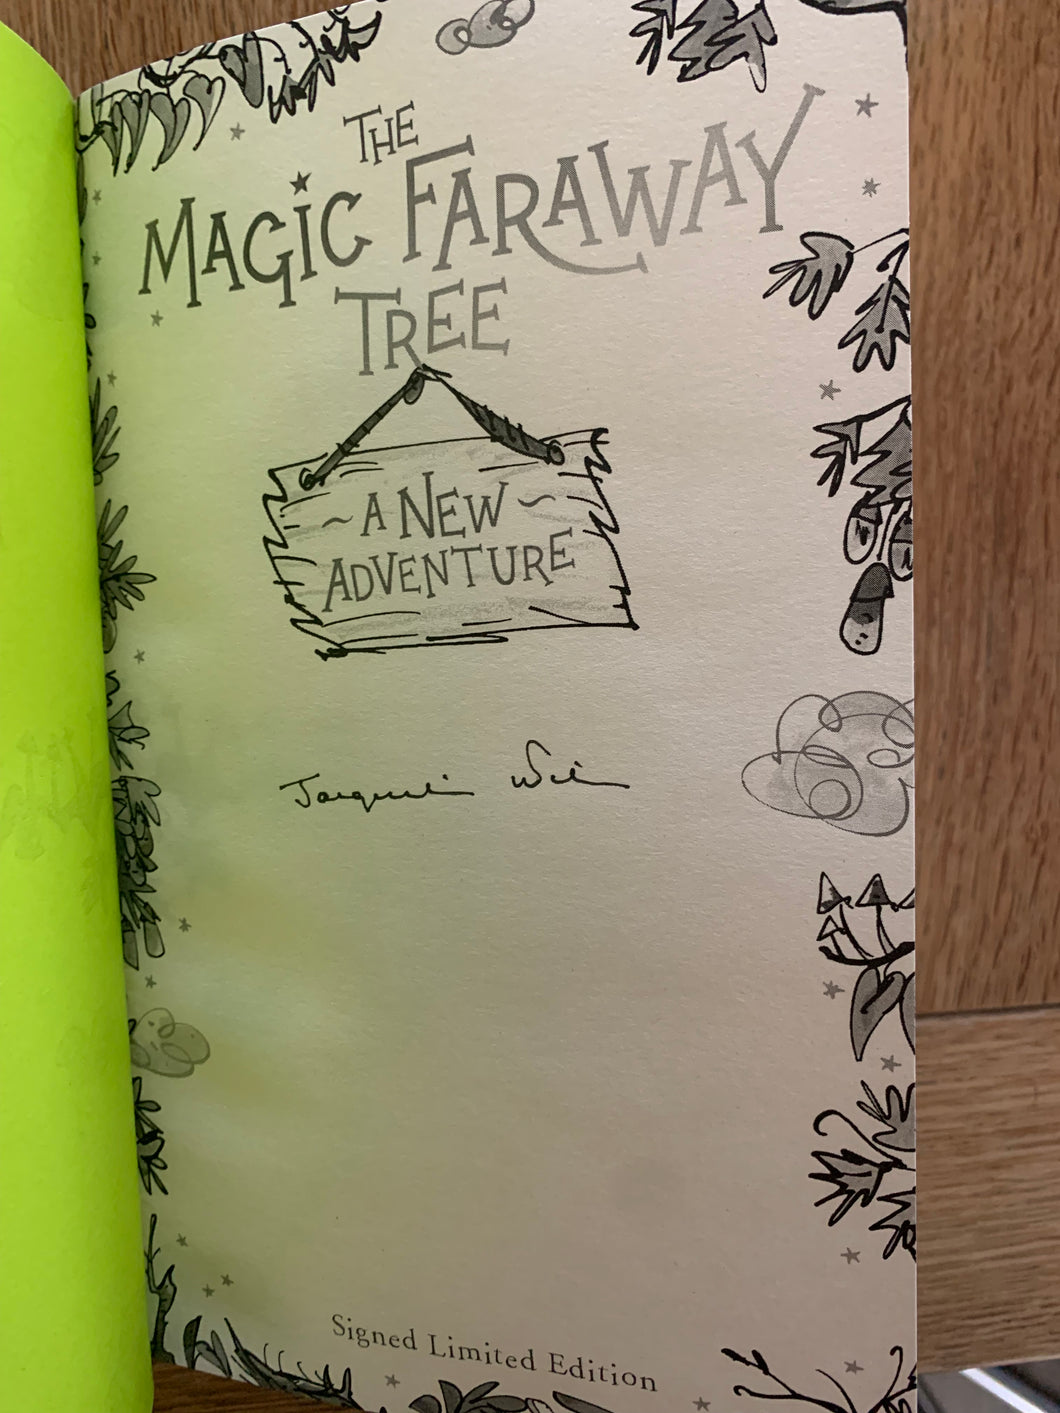 THE
MAGIC FARAWAY
TREE
~ A NEW ~
ADVENTURE
Jacqueline Wilson
Signed Limited Edition